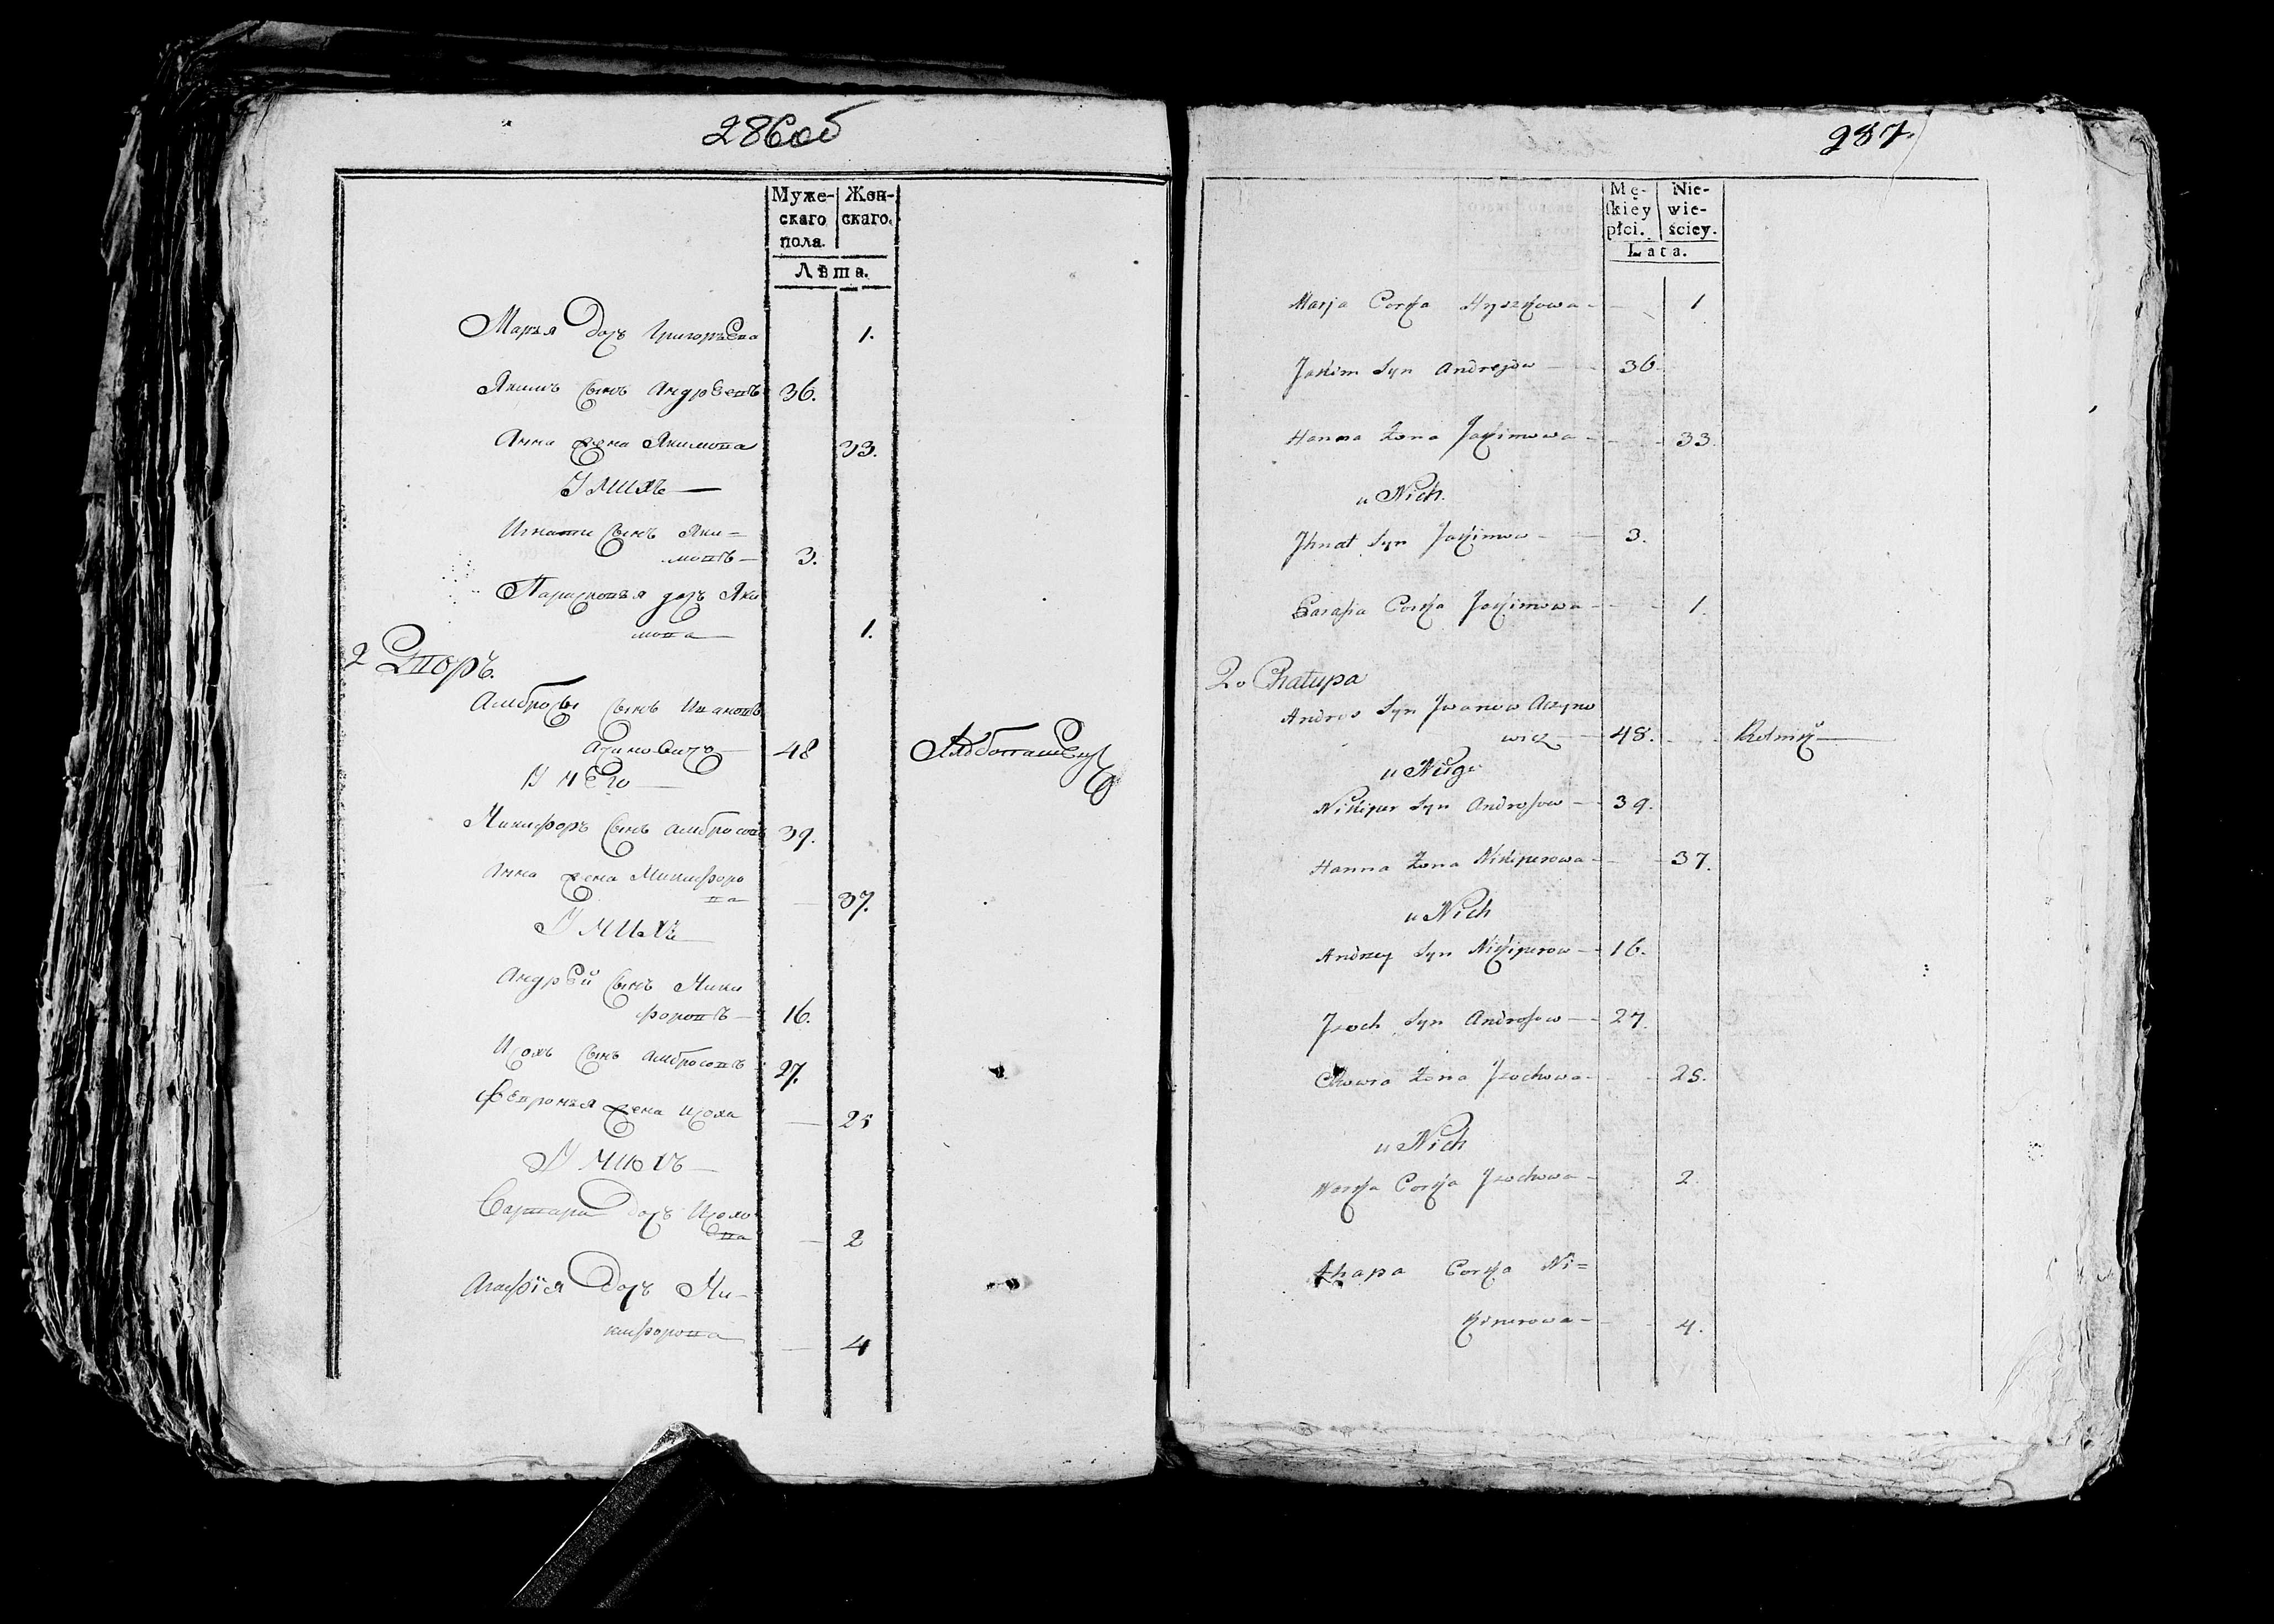 286об
Муже-
скаго
пола.
Жен-
скаго.
Лѣта.
Марья дочь Григорьева 1.
Якимъ сынъ Андрѣевъ 36.
Анна жена Якимова 33.
У нихъ
Игнати сынъ Яки=
мовъ 3.
Парасковья дочь Яки
мова 1.
2 Дворъ.
Амбросы сынъ Ивановъ
48 Хлѣбопашецъ
У него
Никифоръ сынъ Амбросовъ 39.
Анна жена Никифоро
ва 37.
У нихъ
Андрей сынъ Ники
форовъ 16.
Исохъ сынъ Амбросовъ 27.
Февронья жена Исоха 25
У нихъ
Варвара дочь Исохо
ва 2
Агафія дочь Ни-
кифорова 4
287.
Mę-
ſkiey
płci.
Nie-
wie-
ściey.
Lata.
Marja Corka Hryszkowa 1
Jakim Syn Andrejow 36.
Hanna Żona Jakimowa 33.
u Nich.
Jhnat Syn Jakimow 3.
Corka Jakimowa 1.
2o Chałupa
Andros Syn Jwanow Aczyno
wicz 48. Rolnik
u Niego
Nikiper Syn Androsow 39.
Hanna Żona Nikiperowa 37.
u Nich
Andrzey Syn Nikiperow 16.
Jzoch Syn Androsow 27.
Chowra Żona Jzochowa 25.
u Nich
Corka Jzochowa 2.
Ahapa Corka Ni=
kiperowa 4.